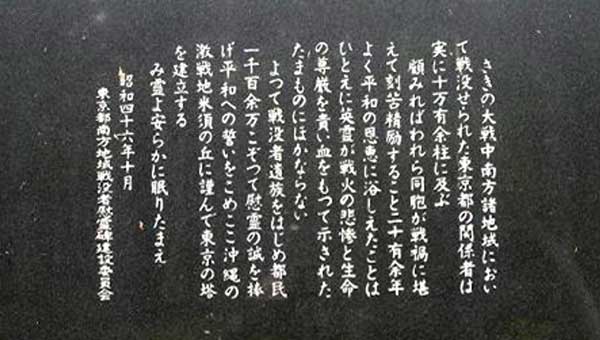 さきの大戦中南方諸地域におい
て戦没せられた東京都の関係者は
実に十万有余柱に及ぶ
顧みればわれら同胞が戦禍に堪
えて刻苦精励すること二十有余年
よく平和の恩恵に浴しえたことは
いとえに英霊が戦火の悲惨と生命
の尊厳を貴い血をもつて示された
たまものにほかならない
よつて戦没者遺族をはじめ都民
一千百余万こぞつて慰霊の誠を捧
げ平和への誓いをこめここ沖縄の
激戦地米須の丘に謹んで東京の塔
を建立する
み霊よ安らかに眠りたまえ
昭和四十六年十月
東京都南方地域戦没者慰霊碑建設委員会